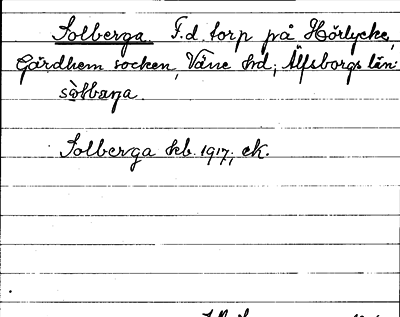 Solberga. F.d. torp på Hörlycke,
Gärdhem socken, Väne hd; Älfsborgs län.
Solberga kb. 1917; ek.